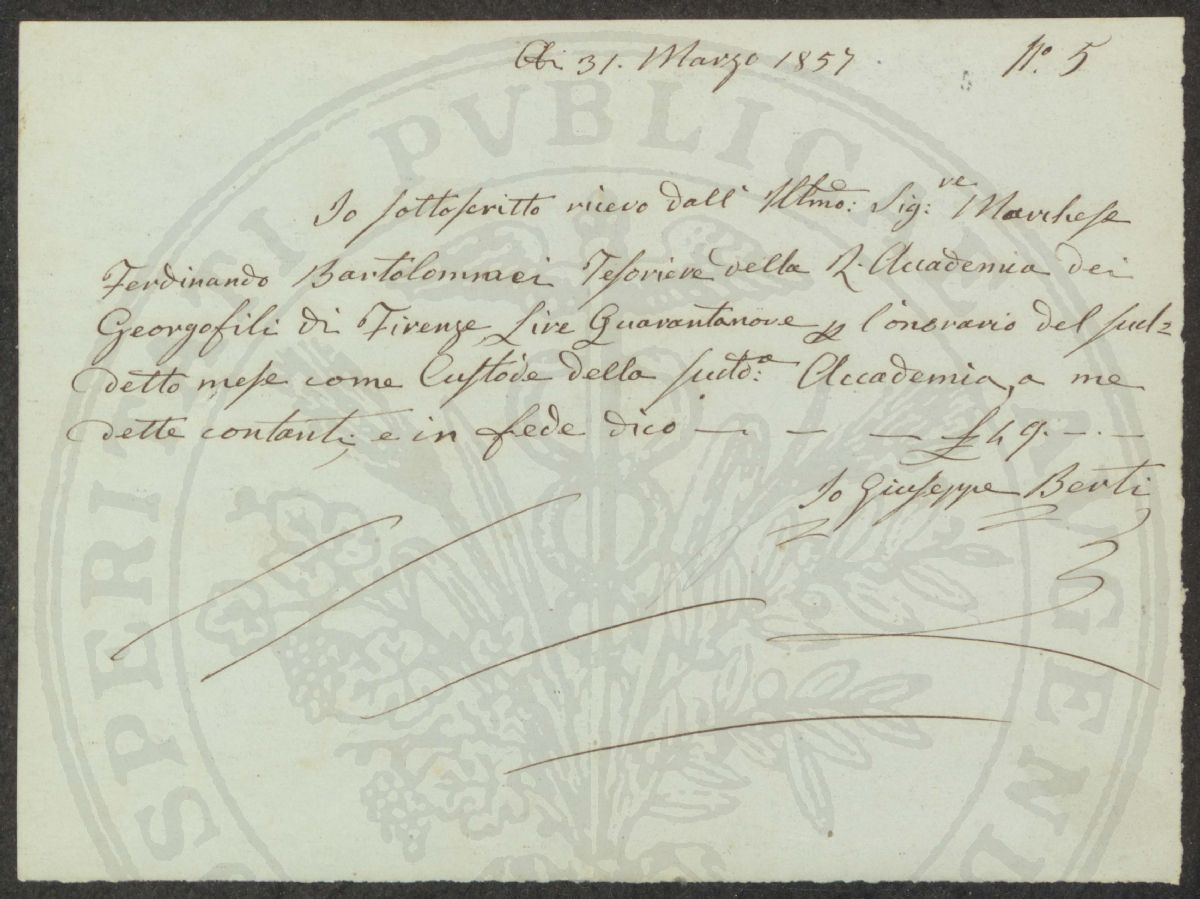 Adi 31. Marzo 1857
N.o 5
Io sottoscritto ricevo dall' Illmo: Sig:re Marchese
Ferdinando Bartolommei Tesoriere della R. Accademia dei
Georgofili di Firenze, Lire Quarantanove p l'onorario del sud=
detto mese come Custode della sudd:a Accademia, a me
dette contanti; e in fede dico — — — — £ 49. — · —
Io Giuseppe Berti
PROSPERITATI PVBLICAE AVGENDAE